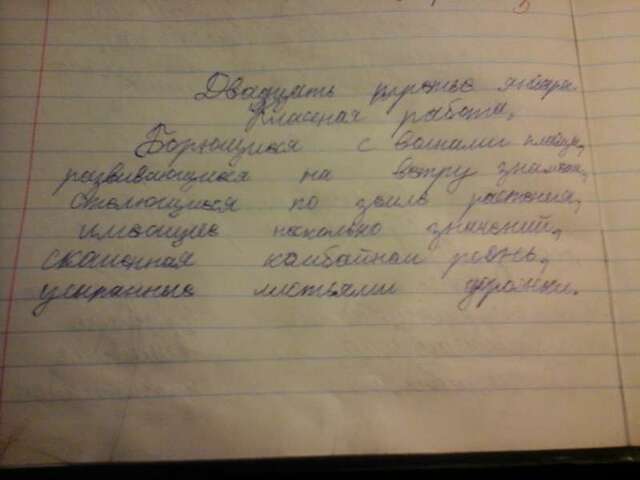 Двадцать третье января.
Классная работа.
Борющихся с волнами пловцы,
развивающихся на ветру знамёна,
стелющихся по земле растения,
имеющие несколько значений,
скошенная комбайном рожь,
усыпанные листьями дорожки.